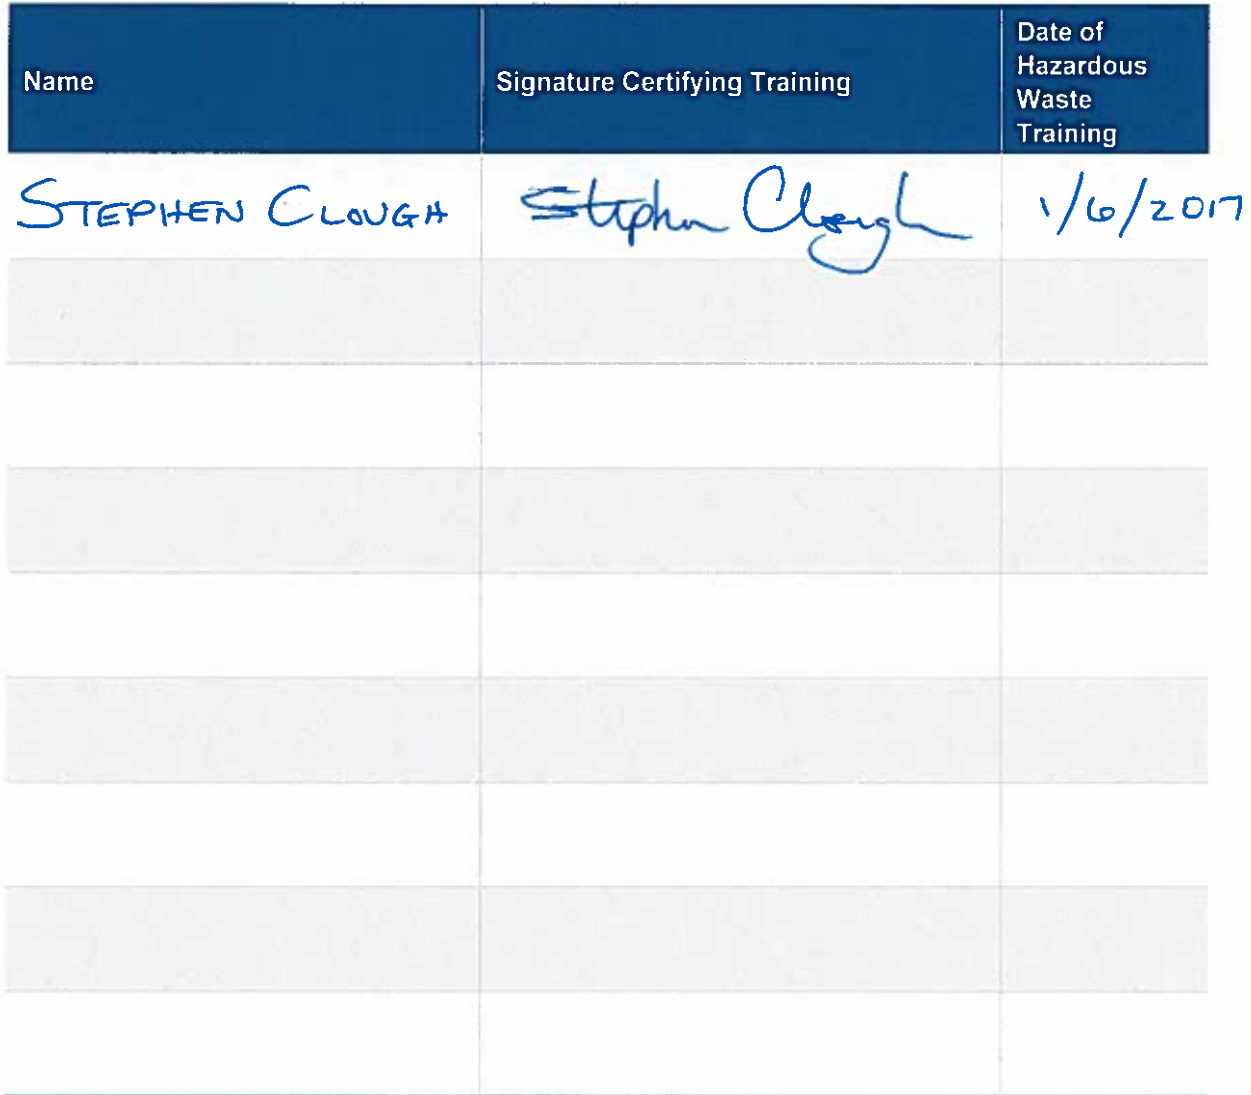 Name
Signature Certifying Training
Date of
Hazardous
Waste
Training
STEPHEN CLOUGH Stephen Clough 1/6/2017